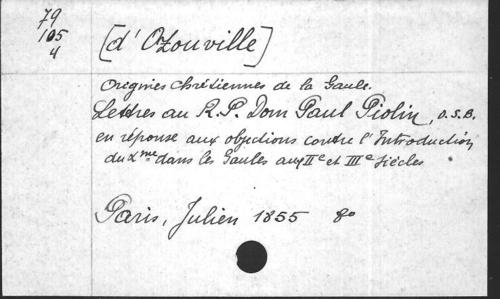 79
105
4
[d'Ozouville]
Origines chrétiennes de la Gaule.
Lettres au R.P. Dom Paul Piolin, O.S.B.
en réponse aux objections contre l'Introduction
du Xme dans les Gaules aux IIe et IIIe siècles
Paris, Julien 1855 8o